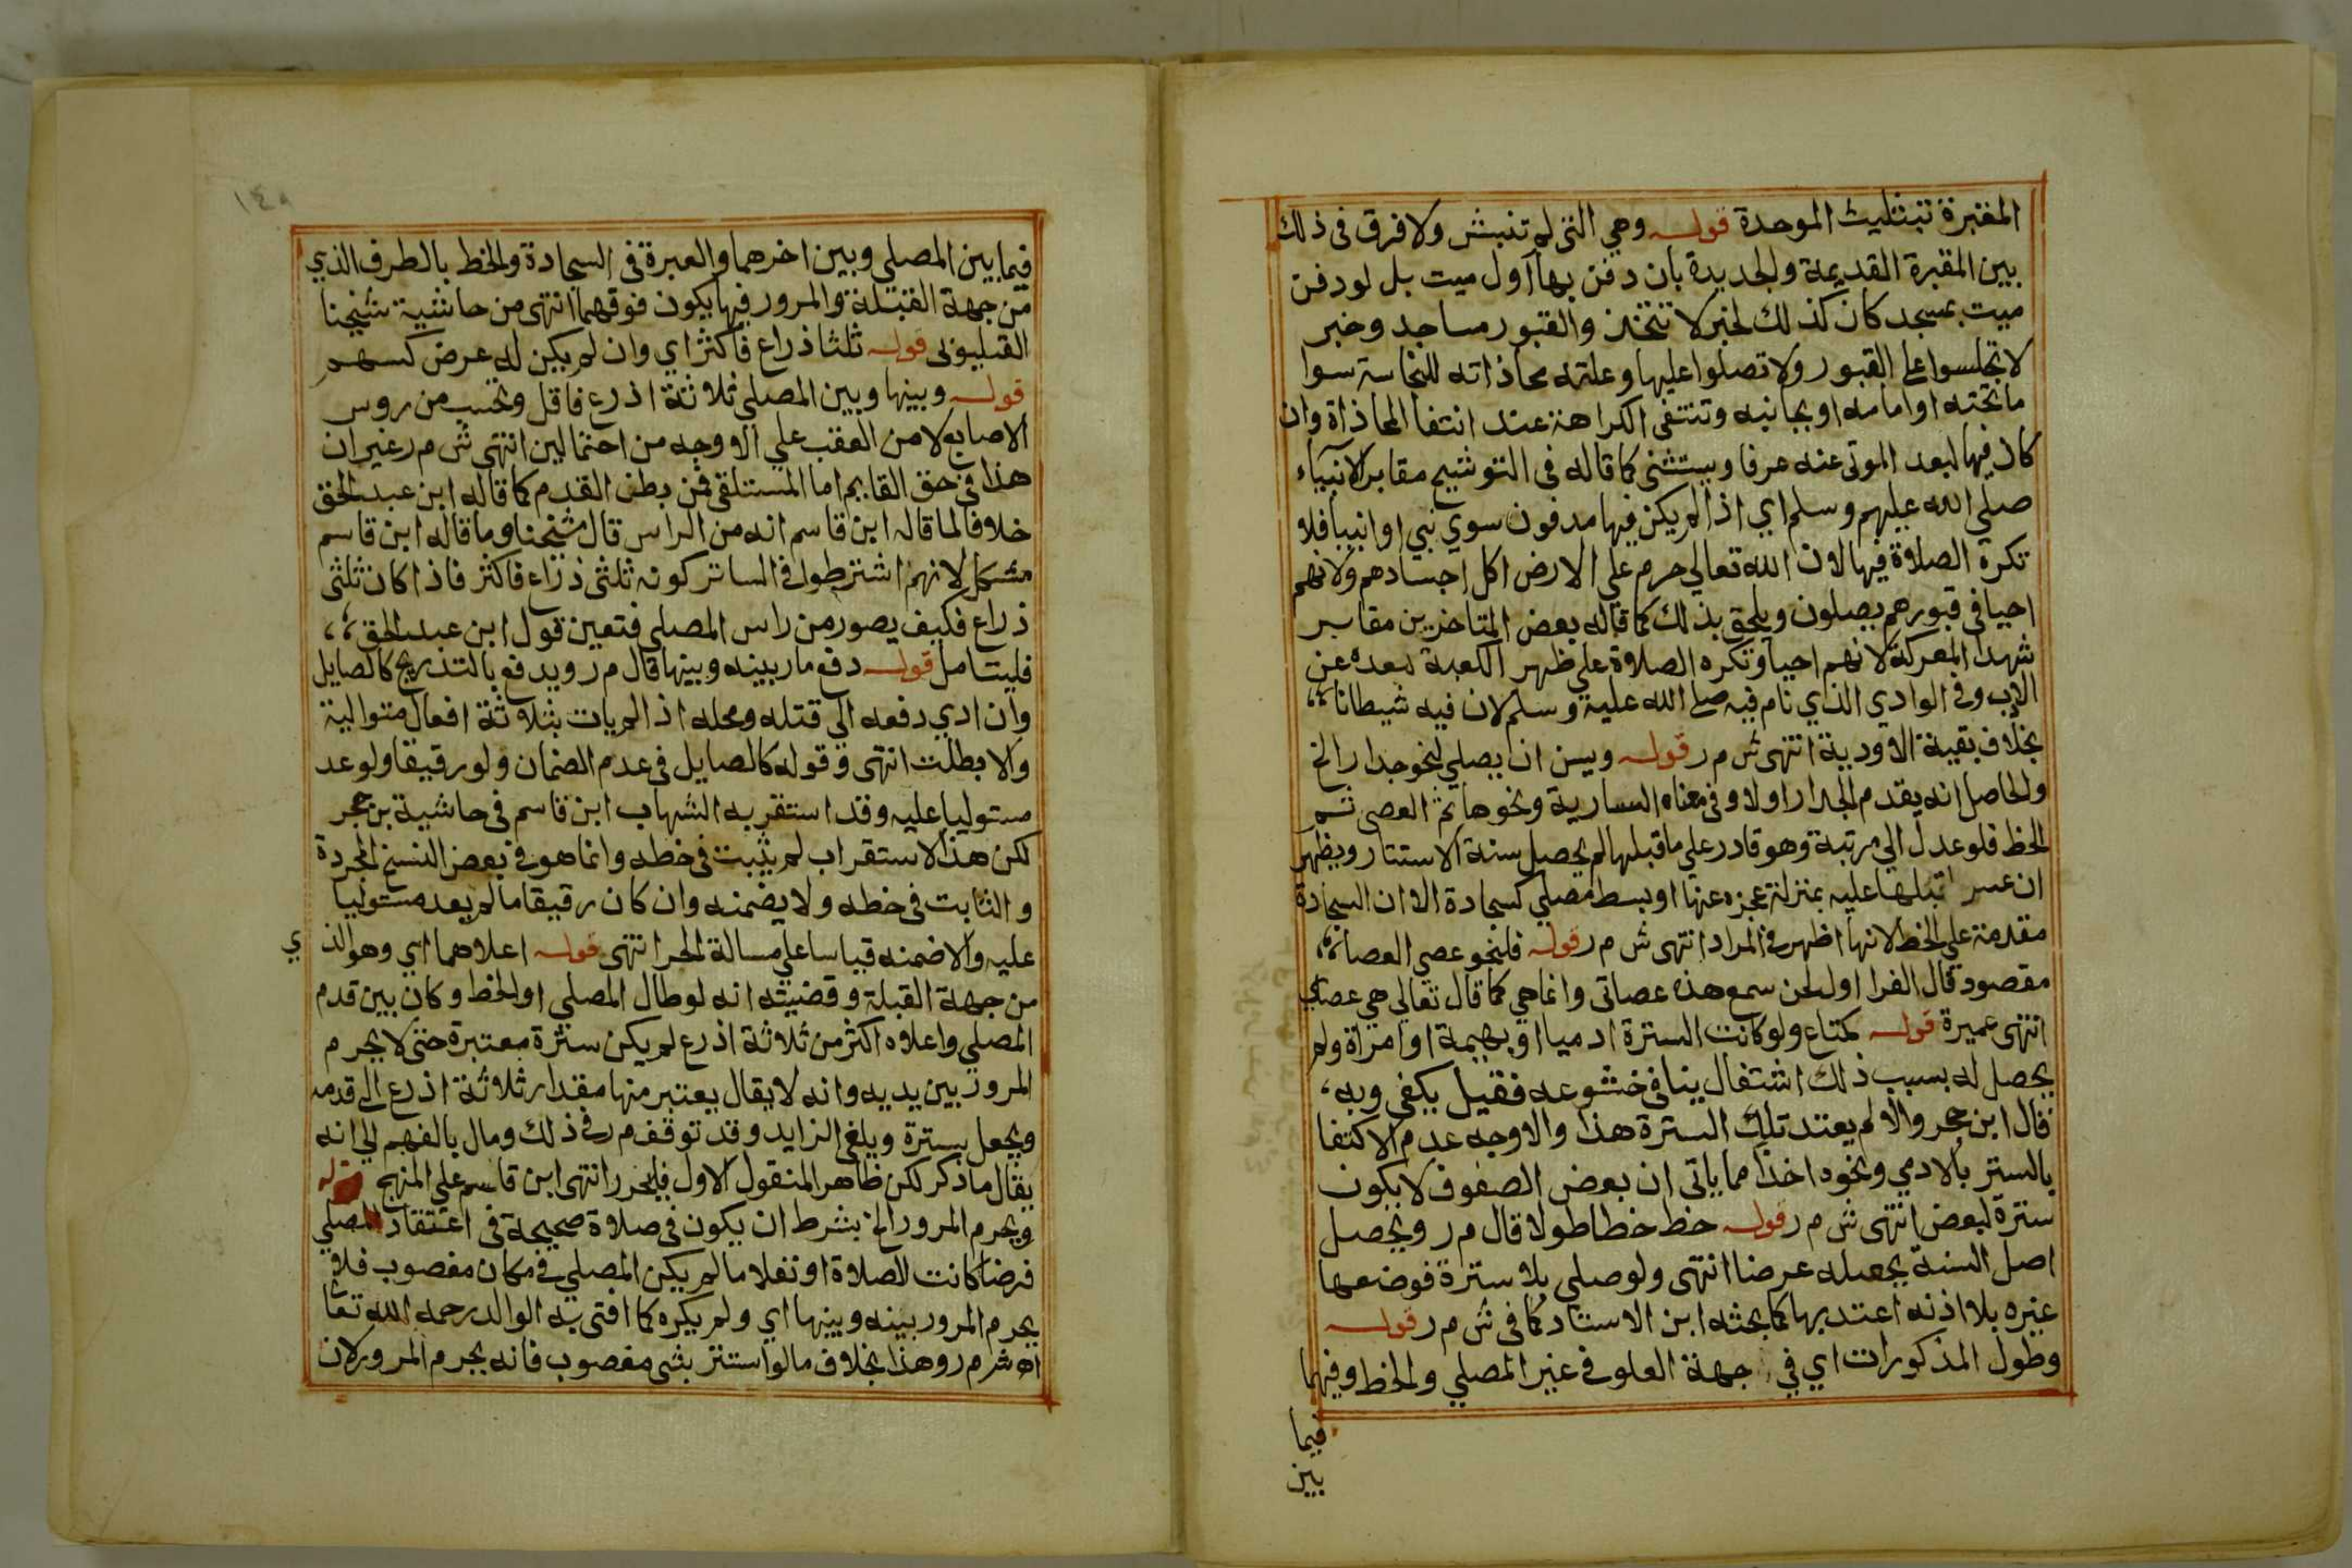 المقبرة بتثليث الموحدة قوله وهي التي لم تنبش ولا فرق في ذلك
بين المقبرة القديمة والجديدة بان دفن بها اول ميت بل لو دفن
ميت بمسجد كان كذلك لخبر لا تتخذ والقبور مساجد وخبر
لا تجلسوا على القبور ولا تصلوا عليها وعلته محاذاته للنجاسة سوا
ماتحته او امامه او بجانبه وتنتفى الكراهة عند انتفا المحاذاة وان
كان فيها لبعد الموتى عنه عرفا ويستثنى كما قاله في التوشيح مقابر الانبياء
صلى الله عليهم وسلم اي اذا لم يكن فيها مدفون سوي نبي او انبيا فلا
تكره الصلاة فيها لان الله تعالي حرم علي الارض اكل اجسادهم ولانهم
احيا في قبورهم يصلون ويلحق بذلك كما قاله بعض المتاخرين مقابر
شهدا المعركة لانهم احيا وتكره الصلاة علي ظهر الكعبة لبعده عن
الادب وفي الوادي الذي نام فيه صلى الله عليه وسلم لان فيه شيطانا
بخلاف بقية الاودية انتهى ش م ر قوله ويسن ان يصلي لنحو جدار الخ
والحاصل انه يقدم الجدار اولا وفي معناه السارية ونحوها ثم العصى ثم
الخط فلو عدل الي مرتبة وهو قادر علي ماقبلها لم يحصل سنة الاستتار ويظهر
ان عسر اقبلها عليه بمنزلة عجزه عنها او بسط مصلي كسجادة الا ان السجادة
مقدمة علي الخط لانها اظهر في المراد انتهى ش م ر قوله فلنحو عصي العصا
مقصود قال الفرا اول لحن سمع هذه عصاتى وانما هي كما قال تعالي هي عصاي
انتهى عميرة قوله كمتاع ولو كانت السترة ادميا او بهيمة او امراة ولم
يحصل له بسبب ذلك اشتغال ينافي خشوعه فقيل يكفى وبه
قال ابن حجر والا لم يعتد بتلك السترة هذا والاوجه عدم الاكتفا
بالستر بالادمي ونحوه اخذا مما ياتى ان بعض الصفوف لا يكون
سترة لبعض انتهى ش م ر قوله خط خطا طولا قال م ر ويحصل
اصل السنة بجعله عرضا انتهى ولو صلي بلا سترة فوضعها
غيره بلا اذنه اعتد بها كما بحثه ابن الاستاد كما في ش م ر قوله
وطول المذكورات اي في جهة العلو في غير المصلي والخط وفيهما
فيما
بين
فيما بين المصلي وبين اخرهما والعبرة في السجادة والخط بالطرف الذي
من جهة القبلة والمرور فيها يكون فوقهما انتهى من حاشية شيخنا
القليوبى قوله ثلثا ذراع فاكثر اي وان لم يكن له عرض كسهم
قوله وبينها وبين المصلي ثلاثة اذرع فاقل وتحسب من روس
الاصابع لا من العقب علي الاوجه من احتمالين انتهى ش م ر غير ان
هذا في حق القايم اما المستلقي فمن بطن القدم كما قاله ابن عبد الحق
خلافا لما قاله ابن قاسم انه من الراس قال شيخنا وما قاله ابن قاسم
مشكل لانهم اشترطوا في الساتر كونه ثلثى ذراع فاكثر فاذا كان ثلثى
ذراع فكيف يصور من راس المصلي فتعين قول ابن عبد الحق
فليتامل قوله دفع مار بينه وبينها قال م ر ويدفع بالتدريج كالصايل
وان ادي دفعه الي قتله ومحله اذا لم يات بثلاثة افعال متوالية
والا بطلت انتهى وقوله كالصايل في عدم الضمان ولو رقيقا ولو عد
مستوليا عليه وقد استقر به الشهاب ابن قاسم في حاشية بن حجر
لكن هذا الاستقراب لم يثبت في خطه وانما هو في بعض النسخ المجردة
والثابت في خطه ولا يضمنه وان كان رقيقا ما لم يعد مستوليا
عليه والا ضمنه قياسا علي مسالة الحر انتهى قوله اعلاهما اي وهو الذ ي
من جهة القبلة وقضيته انه لو طال المصلي او الخط وكان بين قدم
المصلي واعلاه اكثر من ثلاثة اذرع لم يكن سترة معتبرة حتى لا يحرم
المرور بين يديه وانه لا يقال يعتبر منها مقدار ثلاثة اذرع الى قدمه
ويجعل سترة ويلغى الزايد وقد توقف م ر في ذلك ومال بالفهم الي انه
يقال ما ذكر لكن ظاهر المنقول الاول فليحرر انتهى ابن قاسم علي المنهج قوله
ويحرم المرور الخ بشرط ان يكون في صلاة صحيحة في اعتقاد المصلي
فرضا كانت الصلاة او نفلا ما لم يكن المصلي في مكان مغصوب فلا
يحرم المرور بينه وبينها اي ولم يكره كما افتى به الوالد رحمه الله تعا
اه ش م ر وهذا بخلاف ما لو استتر بشى مغصوب فانه يحرم المرور لان